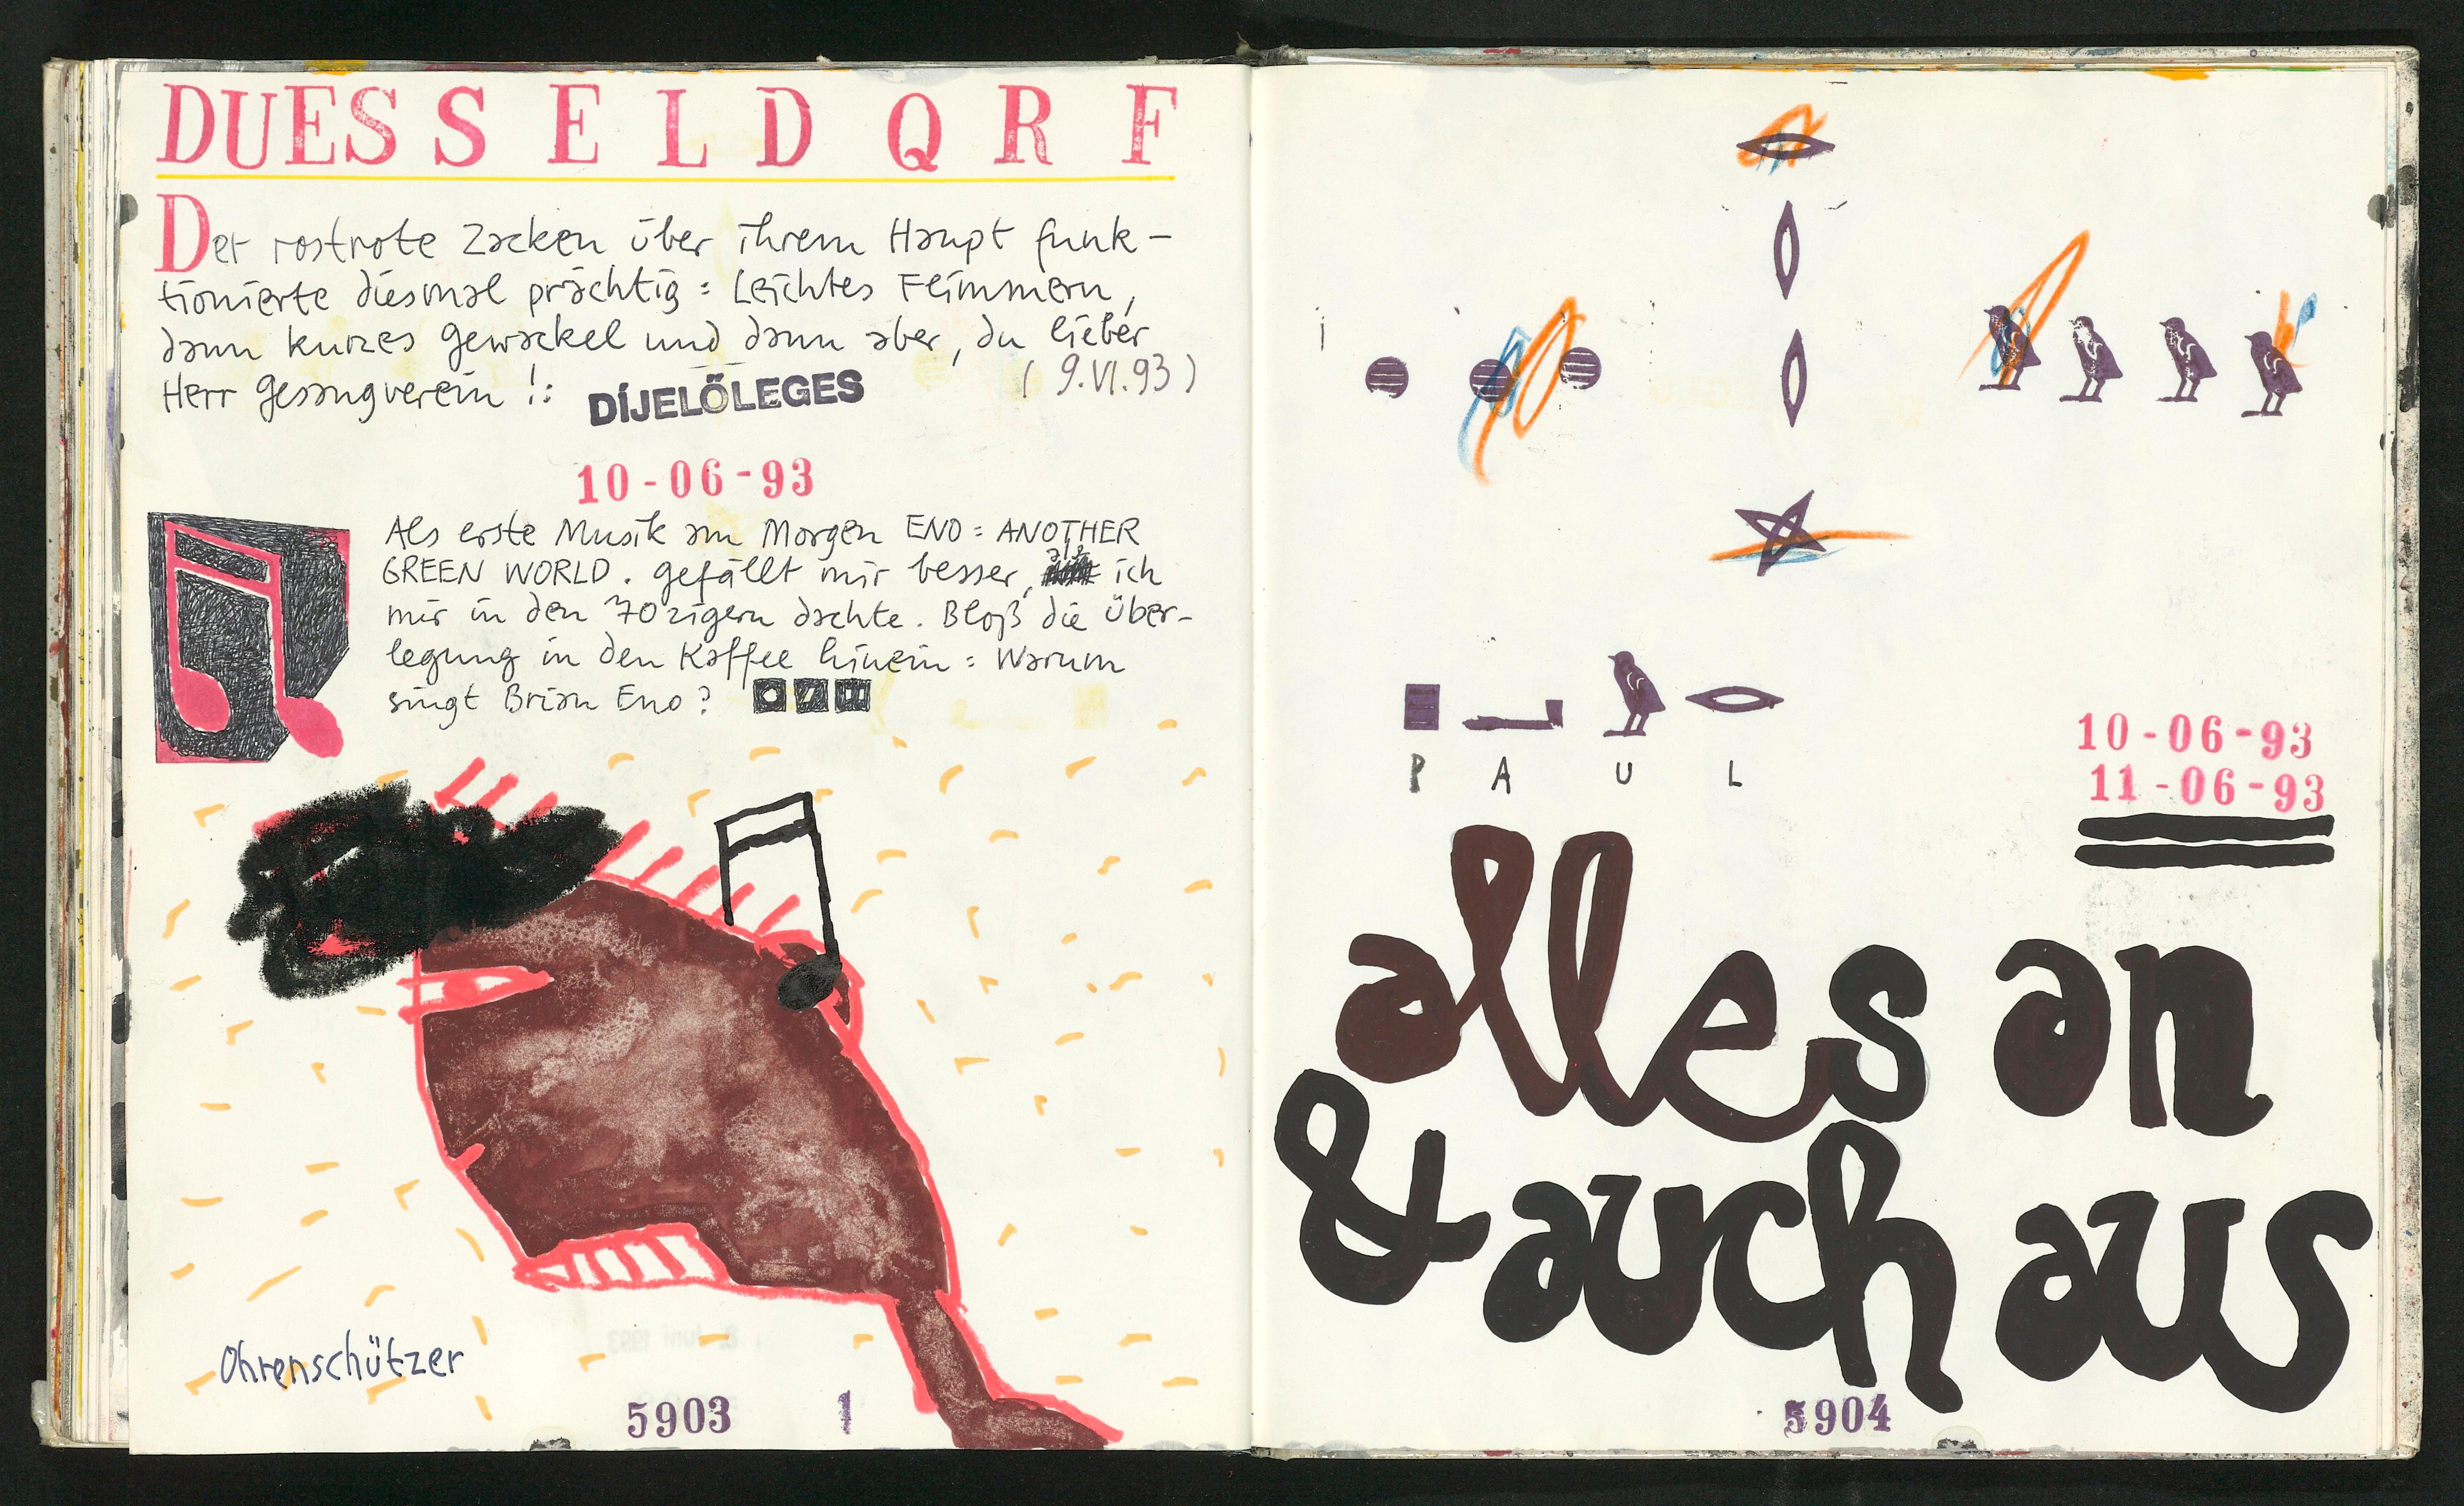 DUESSELDQRF
Der rostrote Zacken über ihrem Haupt funk-
tionierte diesmal prächtig: Leichtes Flimmern,
dann kurzes Gewackel und dann aber, du lieber
Herr Gesangverein!: DÍJELŐLEGES (9.VI.93)
10-06-93
Als erste Musik am Morgen ENO: ANOTHER
GREEN WORLD. Gefällt mir besser, als ich
mir in den 70zigern dachte. Bloß die Über-
legung in den Kaffee hinein: Warum
singt Brian Eno?
Ohrenschützer
5903 1
PAUL
10-06-93
11-06-93
alles an
& auch aus
5904